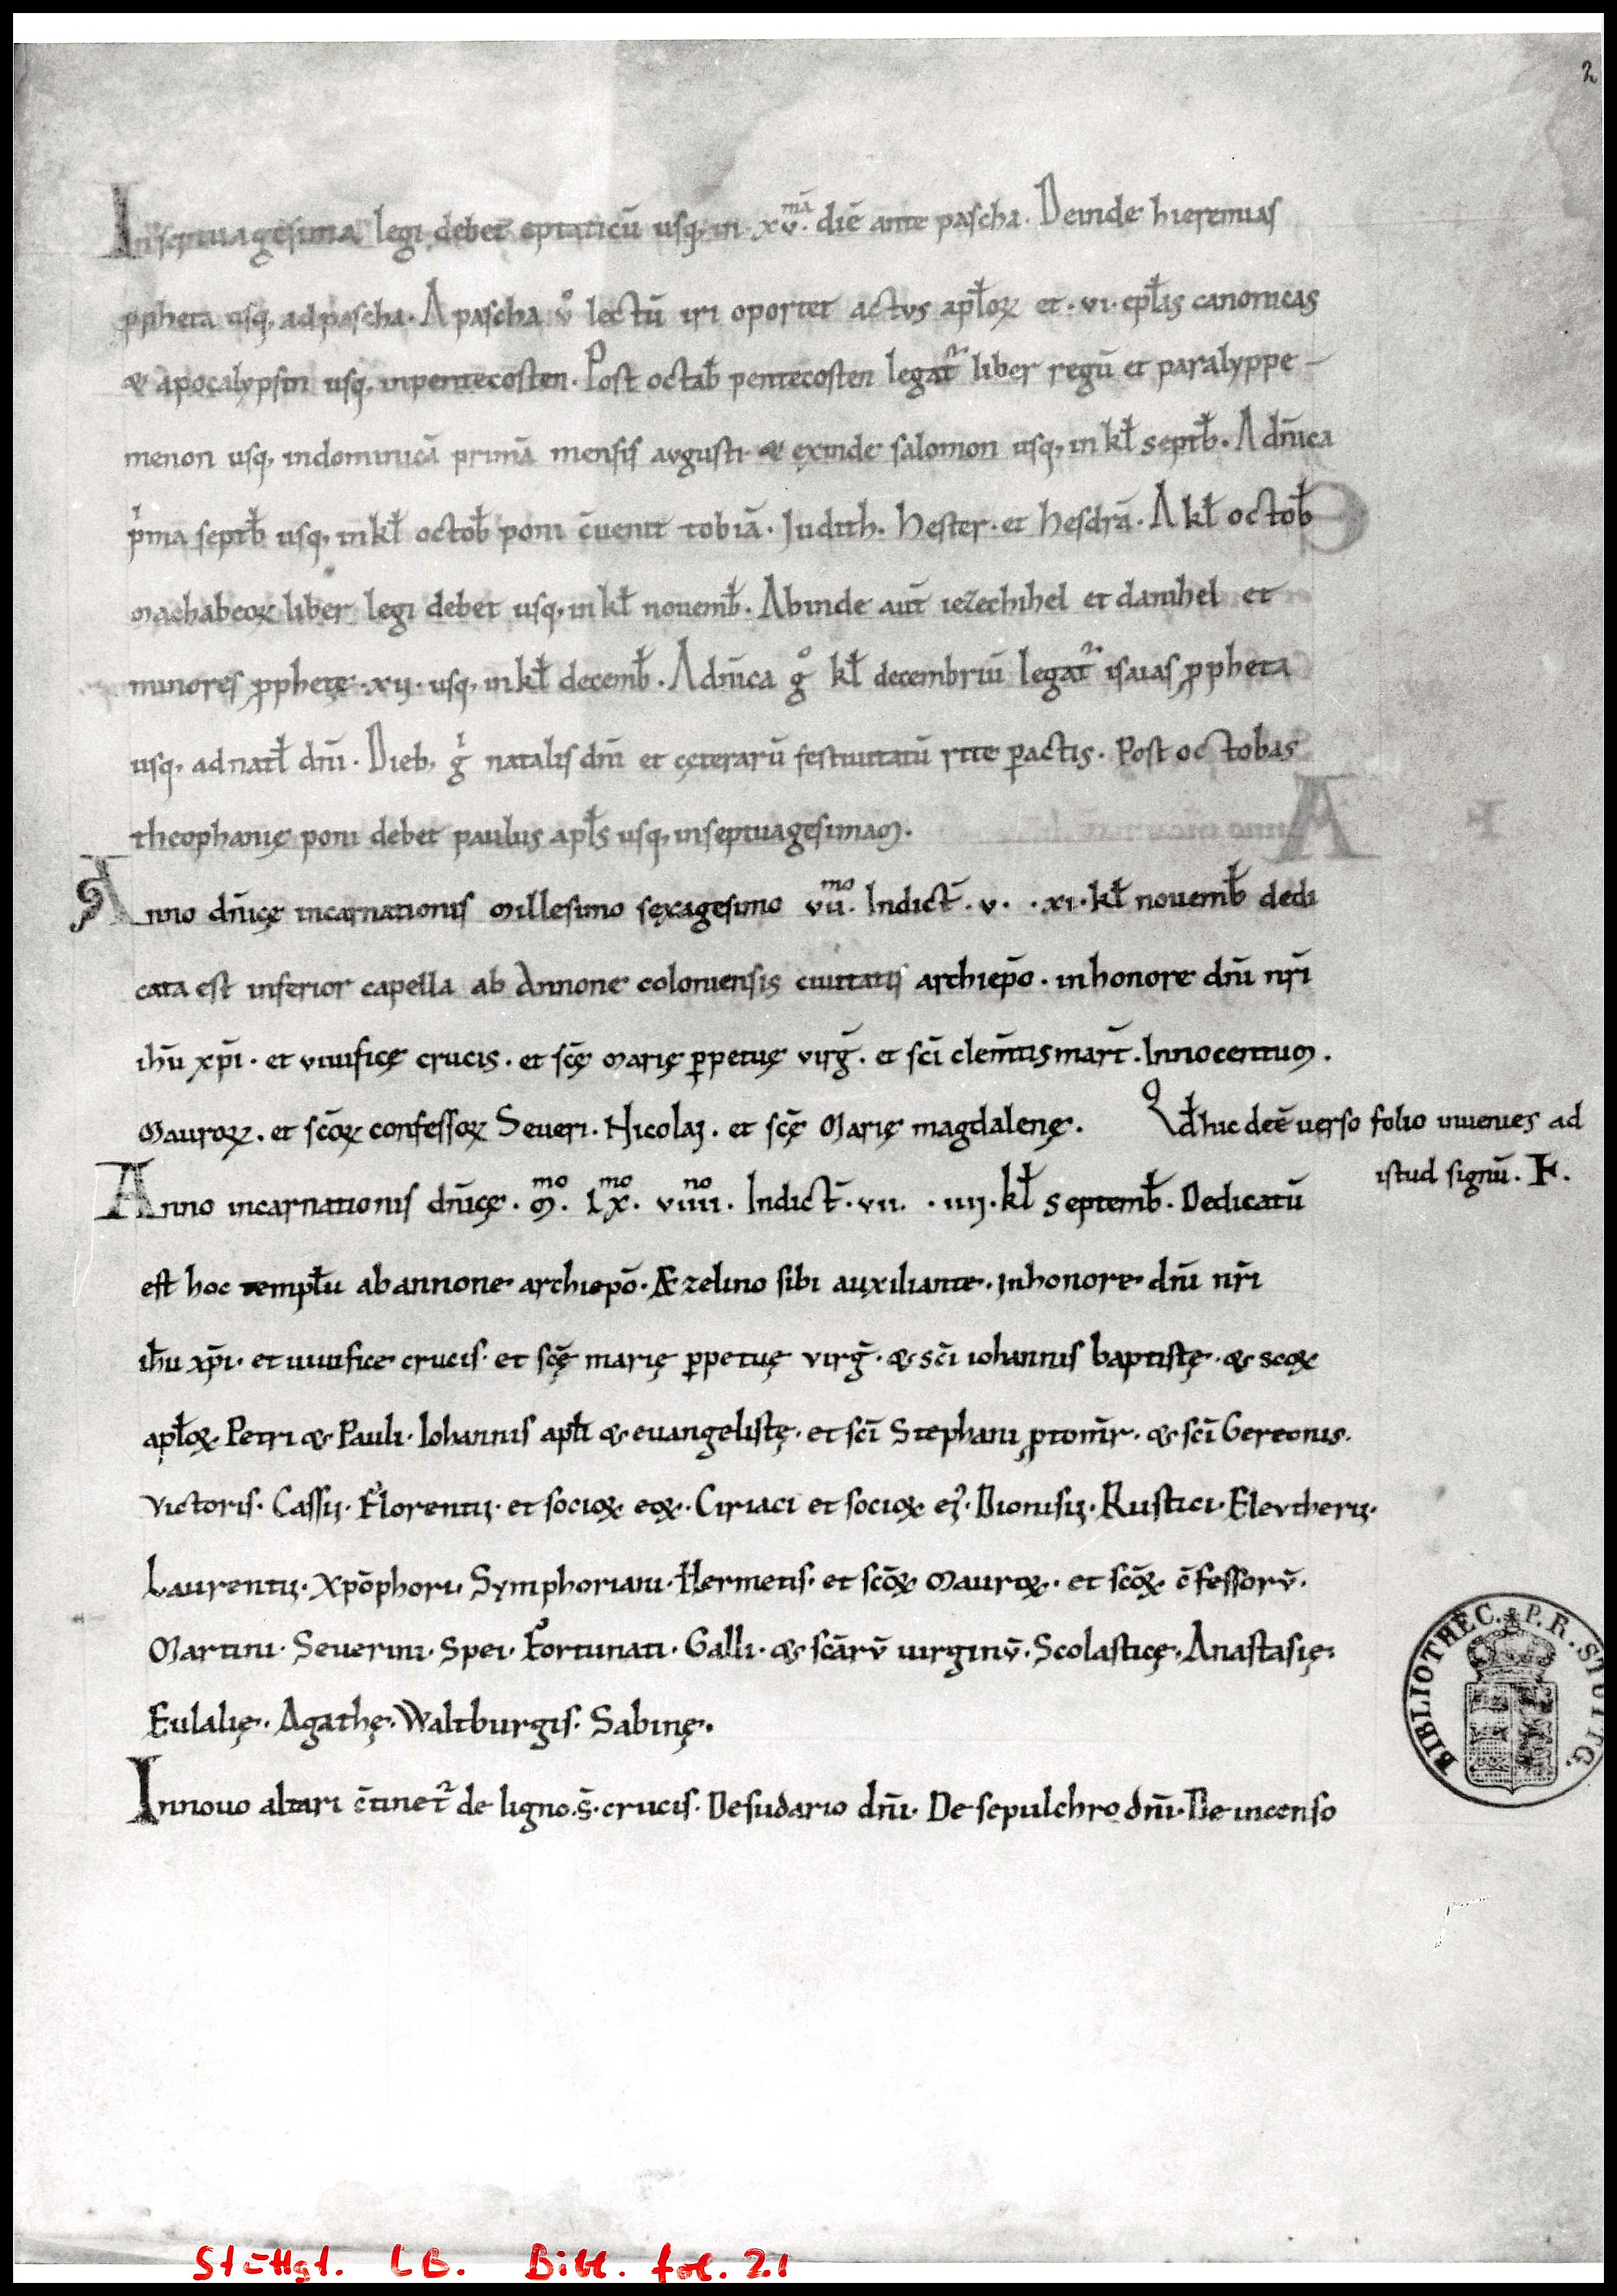 2
In septuagesima legi debet eptaticū usq; in · xv.ᵐᵃ diē ante pascha. Deinde hieremias
ꝓpheta usq; ad pascha. A pascha v̊ lectū iri oportet actus apłoꝝ et · vi · epłas canonicas
& apocalypsin usq; in pentecosten. Post octab̄ pentecosten legat᷑ liber regū et paralyppe-
menon usq; in dominicā primā mensis augusti & exinde salomon usq; in kł septb̄. A dn̄ica
pͥma septb̄ usq; in kł octob̄ poni c̄uenit tobiā. Judith. Hester. et hesdrā. A kł octob̄
machabeoꝝ liber legi debet usq; in kł nouemb̄. Abinde aut̄ iezechihel et danihel et
minores ꝓphetę · xij · usq; in kł decemb̄. A dn̄ica gͦ kł decembriū legat᷑ isaias ꝓpheta
usq; ad natł dn̄i. Dieb; gͥ natalis dn̄i et cęterarū festiuitatū rite ꝑactis. Post octobas
theophanię poni debet paulus apłs usq; in septuagesimam.
Anno dn̄icę incarnationis millesimo sęxagesimo vii.ᵐᵒ Indict̄. v. · xi · kł nouemb̄ dedi
cata est inferior capella ab Annone coloniensis ciuitatis archiep̄o. in honore dn̄i nr̄i
ih̄u xp̄i. et viuificę crucis. et sc̄ę marię ꝑpetuę virḡ. et sc̄i clem̄tis mart̄. Innocentum.
mauroꝝ. et sc̄oꝝ confessoꝝ Seueri. Nicolaj. et sc̄ę Marię magdalenę.
Qd̄ huc deē verso folio inuenies ad
istud signū. F.
Anno incarnationis dn̄icę · m.ᵐᵒ Lx.ᵐᵒ viiii.ⁿᵒ Indict̄ · vii. · iiij · kł septemb̄. Dedicatū
est hoc templ̄u ab annone archiep̄o. Æzelino sibi auxiliante. in honore dn̄i nr̄i
ih̄u xp̄i. et uiuifice crucis. et sc̄ę marię ꝑpetuę virḡ. & sc̄i iohannis baptistę. & scoꝝ
apłoꝝ. Petri & Pauli. Iohannis apłi & euangelistę. et sc̄i Stephani ꝓtom̄r. & sc̄i Gereonis.
Victoris. Cassij. Florentij. et socioꝝ eoꝝ. Ciriaci et socioꝝ ei᷒. Dionisij. Rustici. Eleutherij.
Laurentij. Xp̄ophori. Symphoriani. Hermetis. et sc̄oꝝ mauroꝝ. et sc̄oꝝ c̄fessorū.
Martini. Seuerini. Spei. Fortunati. Galli. & sc̄arū uirginū. Scolasticę. Anastasię.
Eulalię. Agathę. Waltburgis. Sabinę.
In nouo altari c̄tinet᷑ de ligno. s̄. crucis. De sudario dn̄i. De sepulchro dn̄i. De incenso
BIBLIOTHEC. P. R. STUTTG.
Stuttgt. LB. Bibl. fol. 21